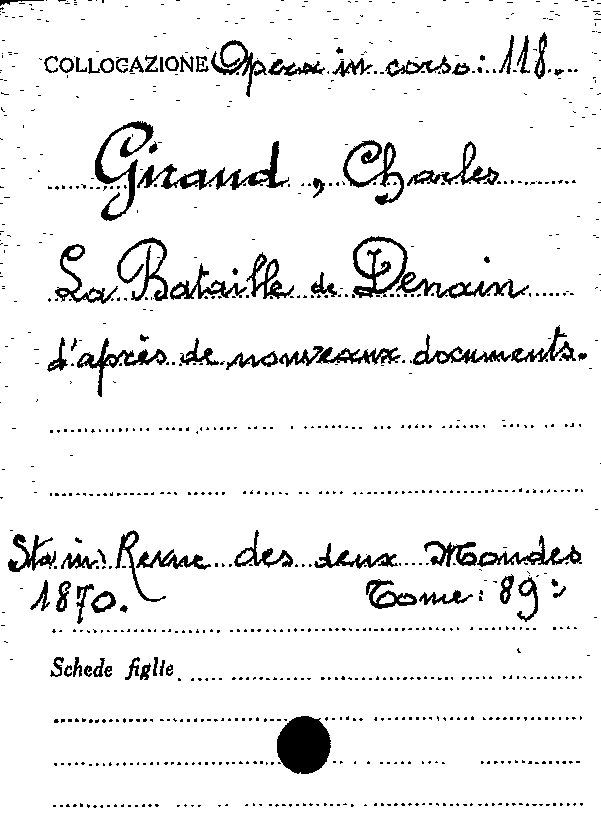 COLLOCAZIONE Opera in corso: 118.
Giraud, Charles
La Bataille de Denain
d'après de nouveaux documents.
Sta in: Revue des deux Mondes
1870. Tome: 89º
Schede figlie